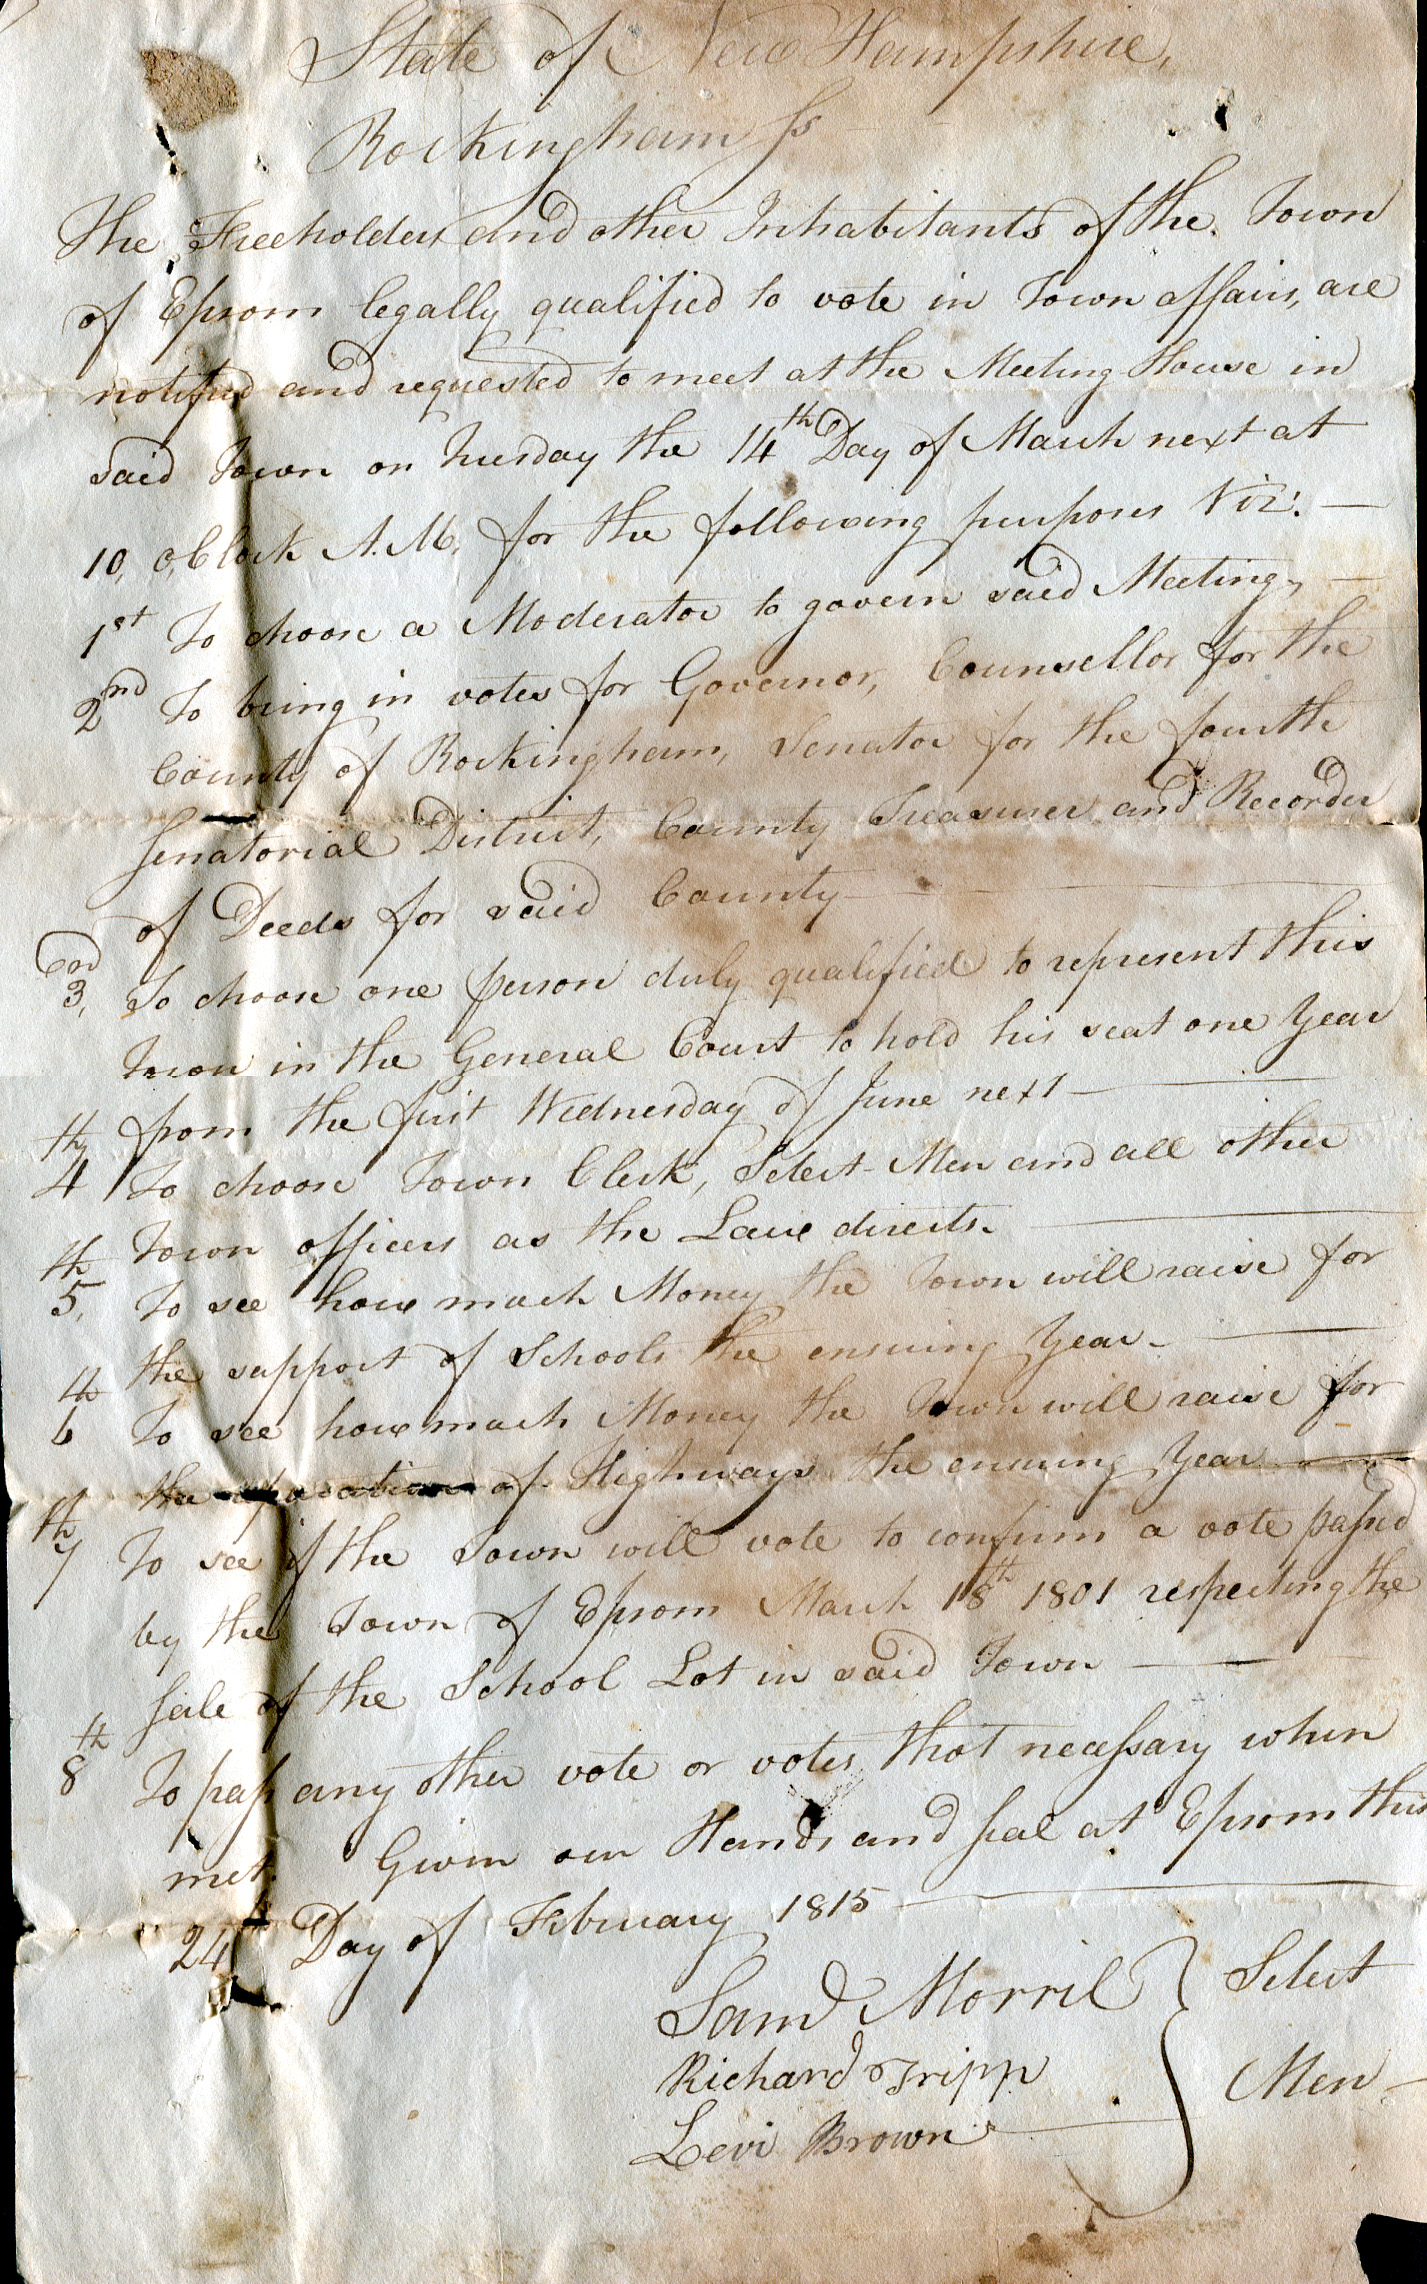 State of New Hampshire,
Rockingham ss
The Freeholders and other Inhabitants of the Town
of Epsom legally qualified to vote in Town affairs, are
notified and requested to meet at the Meeting House in
said Town on Tuesday the 14th Day of March next at
10, o,Clock A.M, for the following purposes Viz:. —
1st To choose a Moderator to govern said Meeting, —
2nd To bring in votes for Governor, Counsellor for the
County of Rockingham, Senator for the fourth
Senatorial District, County Treasurer and Recorder
of Deeds for said County —
3,rd To choose one person duly qualified to represent this
Town in the General Court to hold his seat one Year
from the first Wednesday of June next —
4th To choose Town Clerk, Select-Men and all other
Town officers as the Law directs. —
5,th To see how much Money the Town will raise for
the support of Schools the ensuing Year. —
6th To see how much Money the Town will raise for
the reparation of Highways the ensuing Year —
7th To see if the Town will vote to confirm a vote passed
by the Town of Epsom March 18th 1801 respecting the
sale of the School Lot in said Town —
8th To pass any other vote or votes thot necessary when
met. Given our Hands and seal at Epsom this
24th Day of February 1815 —
Samd Morril } Select
Richard Tripp
Men —
Levi Brown —